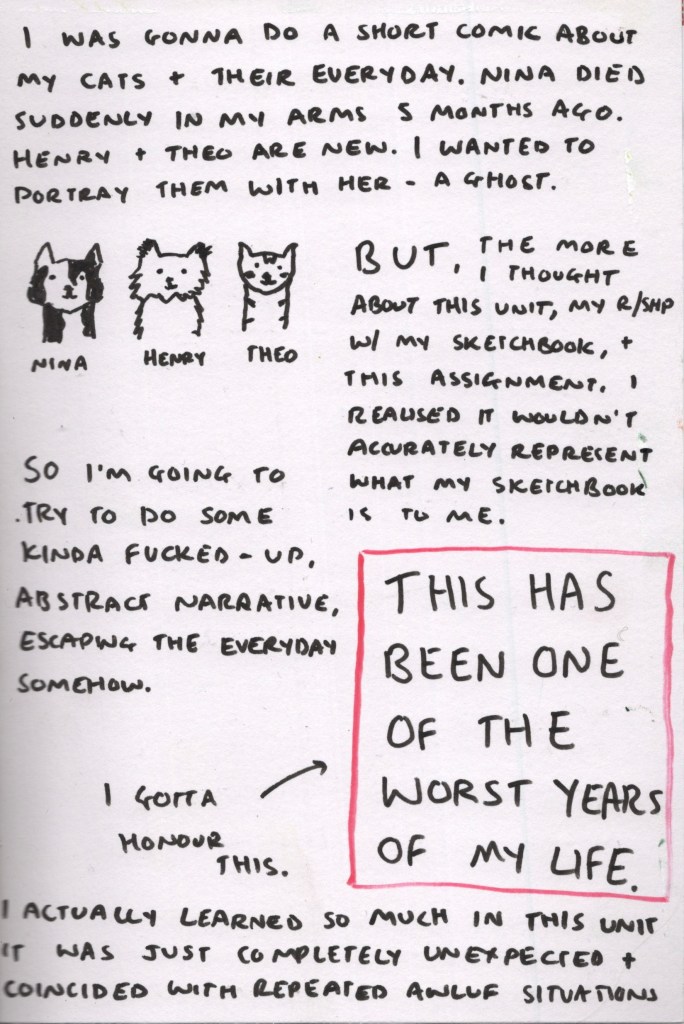 I WAS GONNA DO A SHORT COMIC ABOUT
MY CATS + THEIR EVERYDAY. NINA DIED
SUDDENLY IN MY ARMS 5 MONTHS AGO.
HENRY + THEO ARE NEW. I WANTED TO
PORTRAY THEM WITH HER - A GHOST.
NINA
HENRY
THEO
BUT, THE MORE
I THOUGHT
ABOUT THIS UNIT, MY R/SHP
W/ MY SKETCHBOOK, +
THIS ASSIGNMENT, I
REALISED IT WOULDN'T
ACCURATELY REPRESENT
WHAT MY SKETCHBOOK
IS TO ME.
SO I'M GOING TO
TRY TO DO SOME
KINDA FUCKED-UP,
ABSTRACT NARRATIVE,
ESCAPING THE EVERYDAY
SOMEHOW.
THIS HAS
BEEN ONE
OF THE
WORST YEARS
OF MY LIFE.
I GOTTA
HONOUR
THIS.
I ACTUALLY LEARNED SO MUCH IN THIS UNIT
IT WAS JUST COMPLETELY UNEXPECTED +
COINCIDED WITH REPEATED AWLUF SITUATIONS